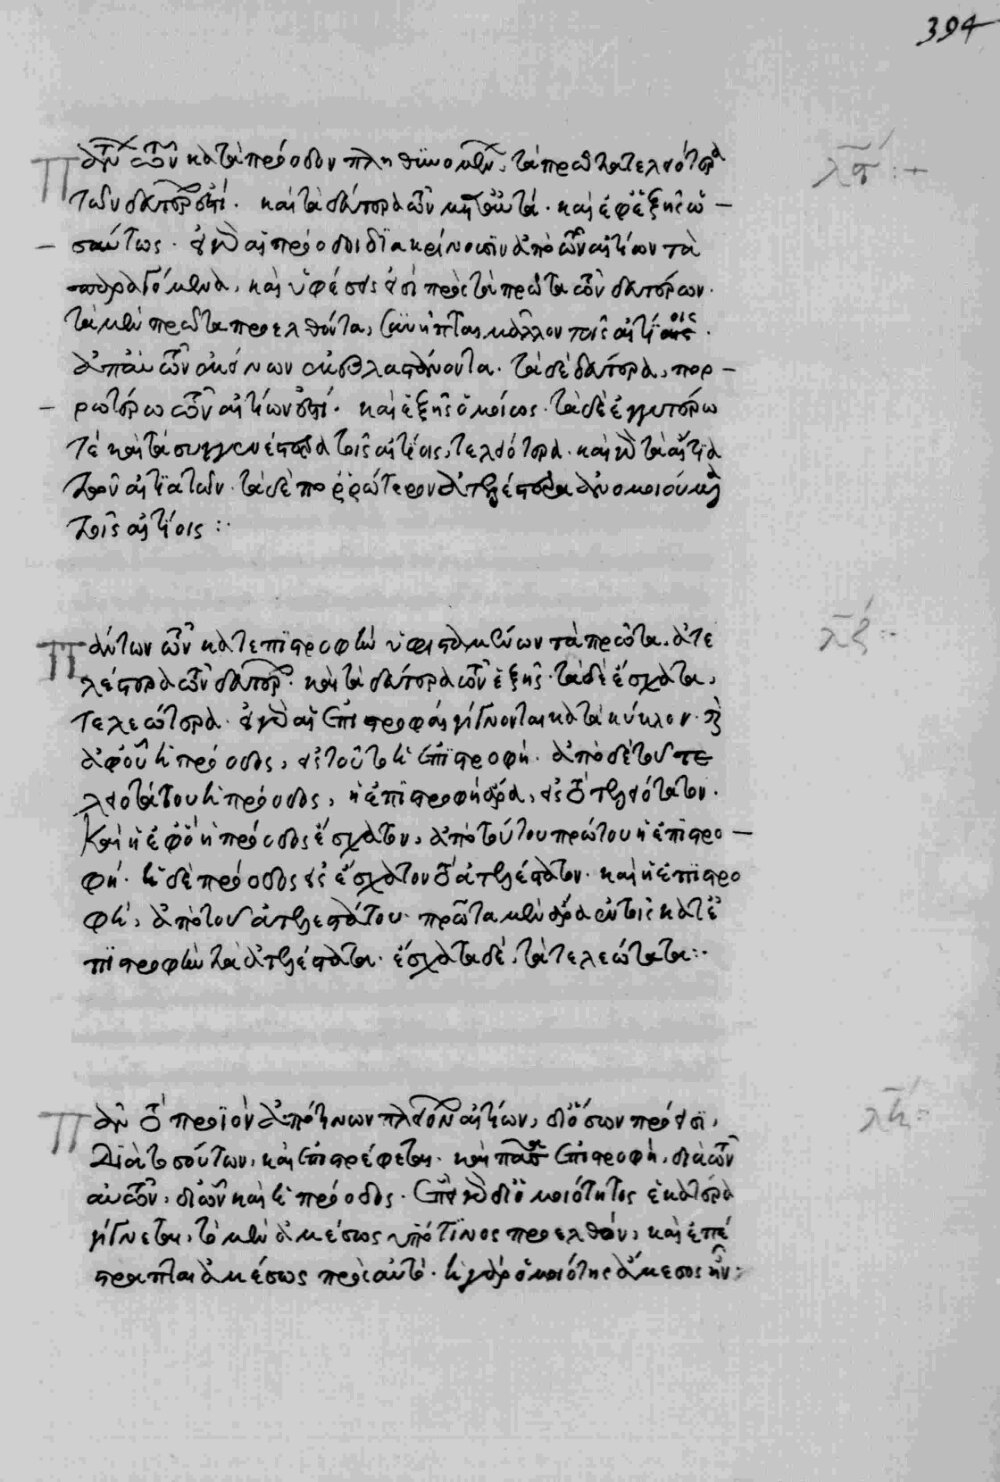 394
Πάντων τῶν κατὰ πρόοδον πληθυνομένων, τὰ πρῶτα τελειότερα λϛ :+
τῶν δευτέρων ἐστί. καὶ τὰ δεύτερα τῶν μετ' αὐτά. καὶ ἐφεξῆς ὡ –
– σαύτως. εἰ γὰρ αἱ πρόοδοι διακρίνουσιν ἀπὸ τῶν αἰτίων τὰ
παραγόμενα, καὶ ὑφέσεις εἰσὶ πρὸς τὰ πρῶτα τῶν δευτέρων.
τὰ μὲν πρῶτα προελθόντα, συνῆπται μᾶλλον τοῖς αἰτίοις.
ἀπ' αὐτῶν ἐκείνων ἐκβλαστάνοντα. τὰ δὲ δεύτερα, πορ –
– ρωτέρω τῶν αἰτίων ἐστί. καὶ ἑξῆς ὁμοίως. τὰ δὲ ἐγγυτέρω
τὲ καὶ τὰ συγγενέστερα τοῖς αἰτίοις, τελειότερα. καὶ γὰρ τὰ αἴτια
τῶν αἰτιατῶν. τὰ δὲ πορρώτερον ἀτελέστερα ἀνομοιούμενα
τοῖς αἰτίοις :.
Πάντων τῶν κατ' ἐπιστροφὴν ὑφισταμένων τὰ πρῶτα. ἀτε λζ :-
λέστερα τῶν δευτέρων. καὶ τὰ δεύτερα τῶν ἑξῆς. τὰ δὲ ἔσχατα,
τελεώτερα. εἰ γὰρ αἱ ἐπιστροφαὶ γίγνονται κατὰ κύκλον. καὶ
ἀφ' οὗ ἡ πρόοδος, εἰς τοῦτο ἡ ἐπιστροφή. ἀπὸ δὲ τοῦ τε
λειοτάτου ἡ πρόοδος, ἡ ἐπιστροφὴ ἄρα, εἰς τὸ τελειότατον.
Καὶ εἰ ἐφ' ὃ ἡ πρόοδος ἔσχατον, ἀπὸ τούτου πρώτου ἡ ἐπιστρο –
φή. ἡ δὲ πρόοδος εἰς ἔσχατον τὸ ἀτελέστατον. καὶ ἡ ἐπιστρο
φὴ, ἀπὸ τοῦ ἀτελεστάτου. πρῶτα μὲν ἄρα ἐν τοῖς κατ' ἐ
πιστροφὴν τὰ ἀτελέστατα. ἔσχατα δὲ, τὰ τελεώτατα :.
Πᾶν τὸ προϊὸν ἀπό τινων πλειόνων αἰτίων, δι' ὅσων πρόεισι, λη :
διὰ τοσούτων, καὶ ἐπιστρέφεται. καὶ πᾶσα ἐπιστροφή, διὰ τῶν
αὐτῶν, δι' ὧν καὶ ἡ πρόοδος. ἐπεὶ γὰρ δι' ὁμοιότητος ἑκάτερα
γίγνεται, τὸ μὲν ἀμέσως ἀπό τινος προελθόν, καὶ ἐπέ
στραπται ἀμέσως πρὸς αὐτό. ἡ γὰρ ὁμοιότης ἄμεσος ἦν :